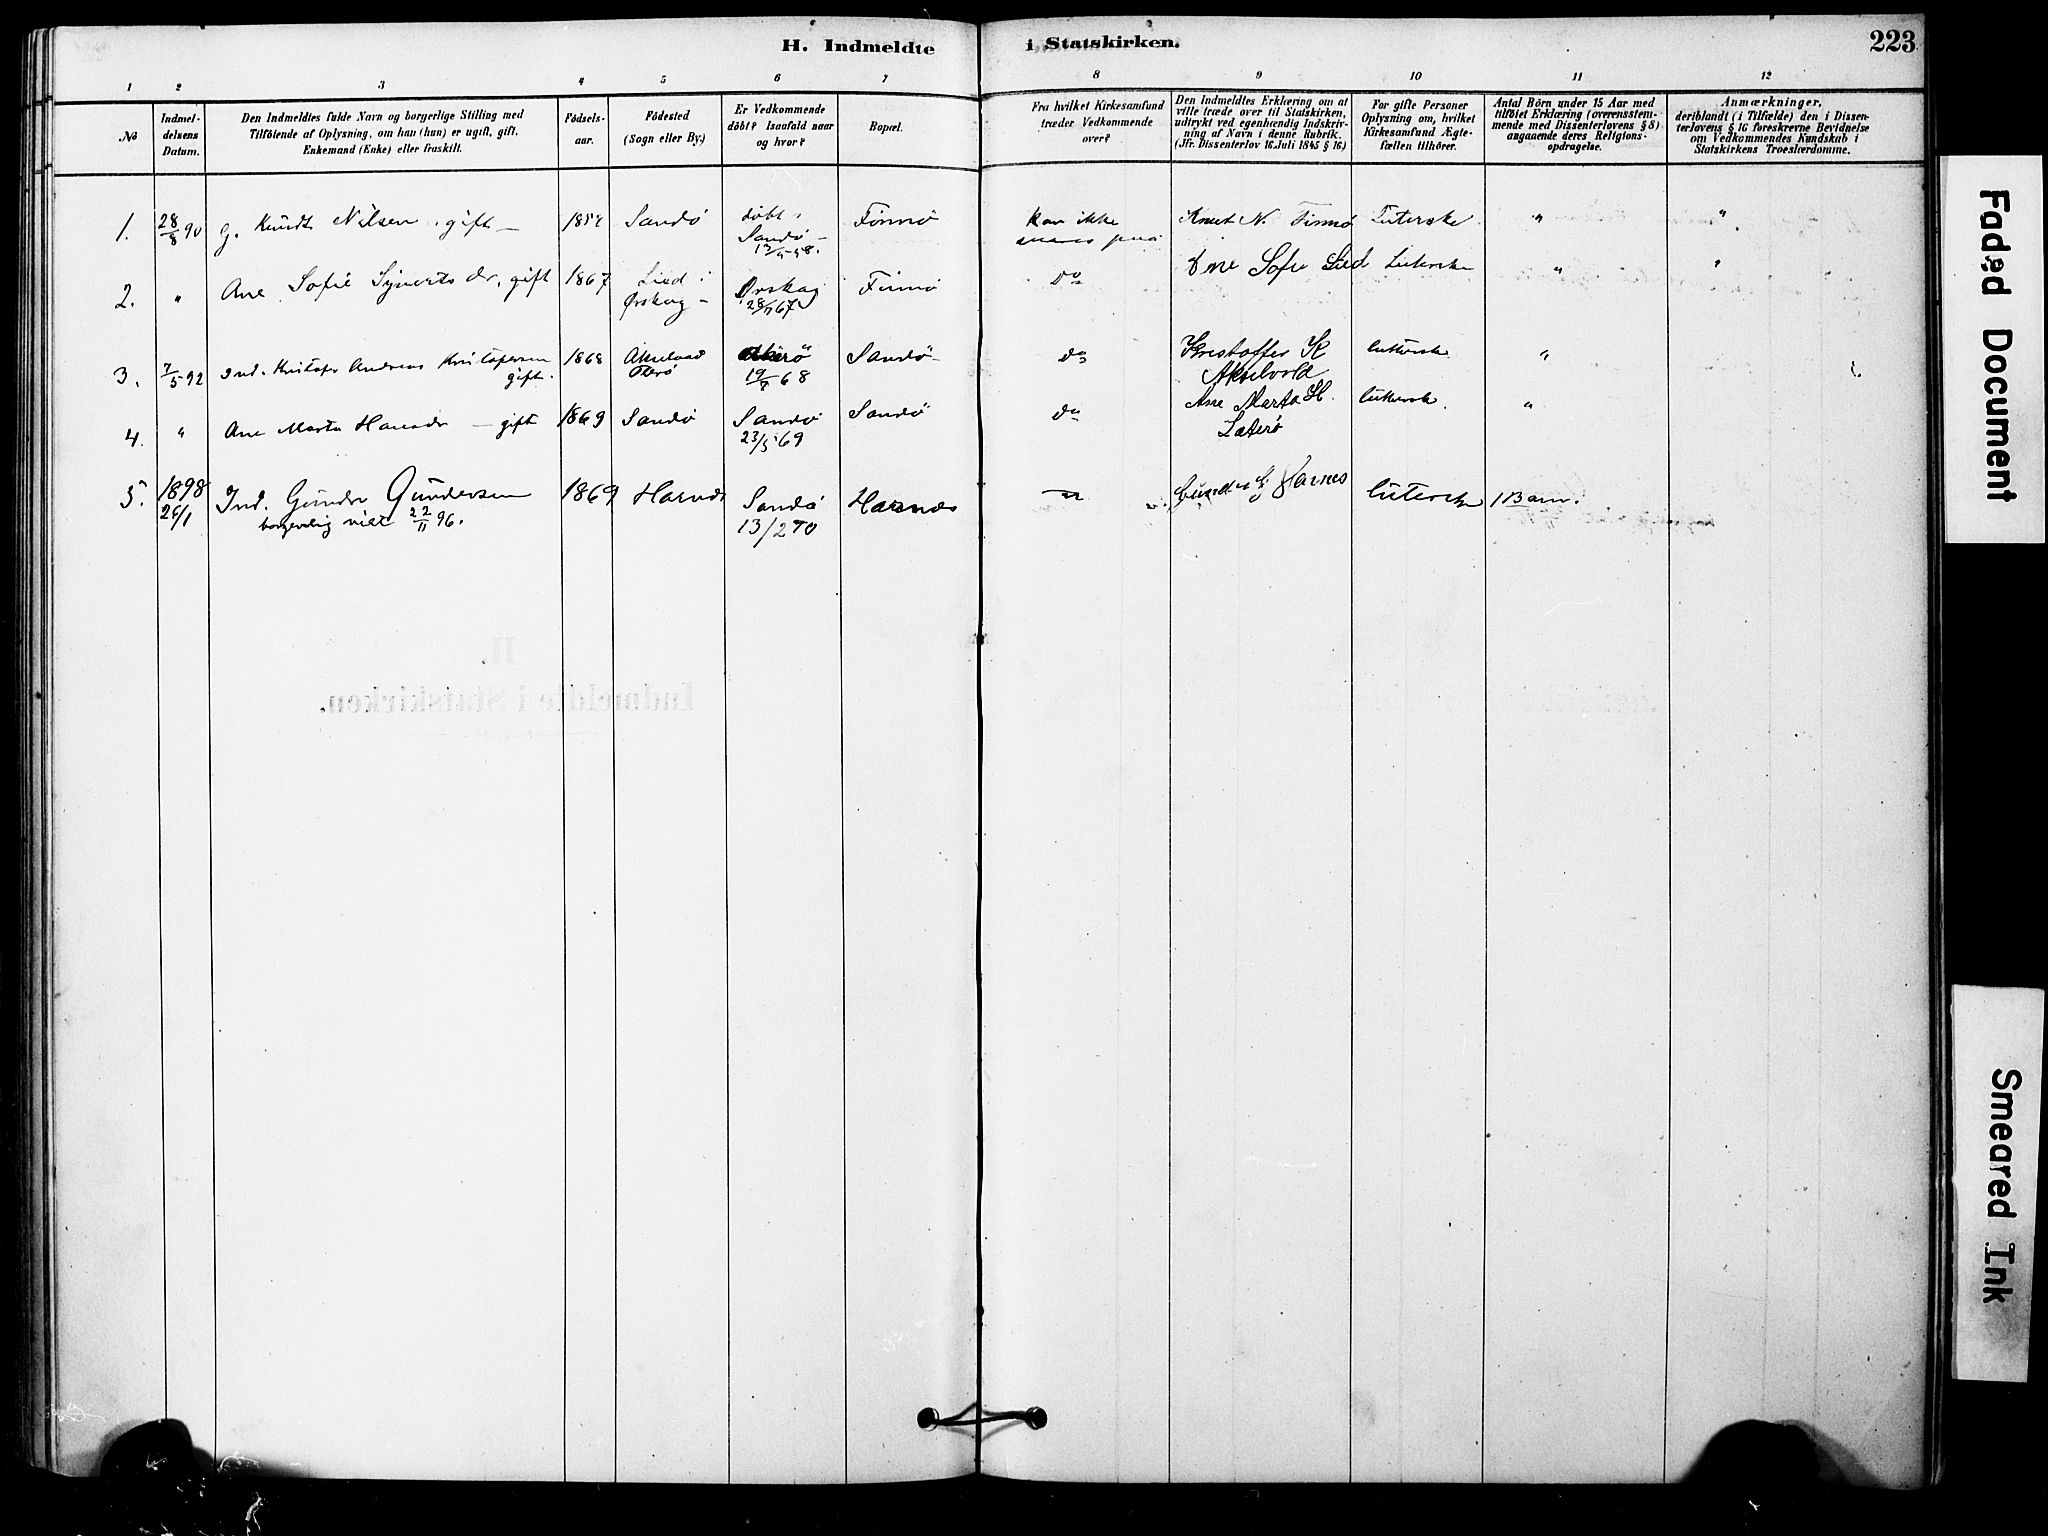 H. Indmeldte i Statskirken.
223
1 2 3 4 5 6 7 8 9 10 11 12
No
Indmel-
delsens
Datum.
Den Indmeldtes fulde Navn og borgerlige Stilling med
Tilföiende af Oplysning, om han (hun) er ugift, gift,
Enkemand (Enke) eller fraskilt.
Födsels-
aar.
Födested
(Sogn eller By.)
Er Vedkommende
döbt? Isaafald naar
og hvor?
Bopæl.
Fra hvilket Kirkesamfund
træder Vedkommende
over?
Den Indmeldtes Erklæring om at
ville træde over til Statskirken,
udtrykt ved egenhændig Indskriv-
ning af Navn i denne Rubrik.
(Jfr. Dissenterlov 16. Juli 1845 § 16)
For gifte Personer
Oplysning om, hvilket
Kirkesamfund Ægte-
fællen tilhörer.
Antal Börn under 15 Aar med
tilföiet Erklæring (overensstem-
mende med Dissenterlovens § 8)
angaaende deres Religions-
opdragelse.
Anmærkninger,
deriblandt (i Tilfælde) den i Dissen-
terlovens § 16 foreskrevne Bevidnelse
om Vedkommendes Kundskab i
Statskirkens Troeslærdomme.
1. 28/8 90 G. Knudt Nilsen, gift — Sandö döbt i Sandö — Finnö kan ikke Knut N. Finnö Luterske " "
2. " Ane Sofie Synverts dr, gift 1867 Lied i Ørskog — Ørskog 28/11 67 Finnö do Ane Sofie Lied Luterske " "
3. 7/5 92 Ind. Kristofer Andreas Kristofersen gift. 1868 Akselvold 19/7 68 Sandö do Kristoffer K Akselvold lutersk "
4. " Ane Marta Hansdr — gift 1869 Sandö Sandö 23/5 69 Sandö do Ane Marta H. lutersk. "
5. 1898 26/1 Ind. Gunder Gundersen borgerlig viet 22/11 96. 1869 Harnes Sandö 13/2 70 Harnes Gunder G Harnes lutersk 1 Barn.
H.
Indmeldte i Statskirken.
Faded Document
Smeared Ink